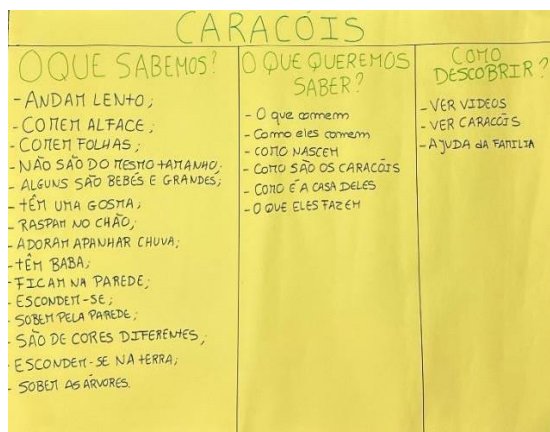 CARACÓIS
O QUE SABEMOS?
- ANDAM LENTO;
- COMEM ALFACE;
- COMEM FOLHAS;
- NÃO SÃO DO MESMO TAMANHO;
- ALGUNS SÃO BEBÉS E GRANDES;
- TÊM UMA GOSMA;
- RASPAM NO CHÃO;
- ADORAM APANHAR CHUVA;
- TÊM BABA;
- FICAM NA PAREDE;
- ESCONDEM-SE;
- SOBEM PELA PAREDE;
- SÃO DE CORES DIFERENTES;
- ESCONDEM-SE NA TERRA;
- SOBEM AS ÁRVORES.
O QUE QUEREMOS
SABER?
- O que comem
- Como eles comem
- COMO NASCEM
- COMO SÃO OS CARACÓIS
- COMO É A CASA DELES
- O QUE ELES FAZEM
COMO
DESCOBRIR?
- VER VIDEOS
- VER CARACÓIS
- AJUDA da FAMILIA